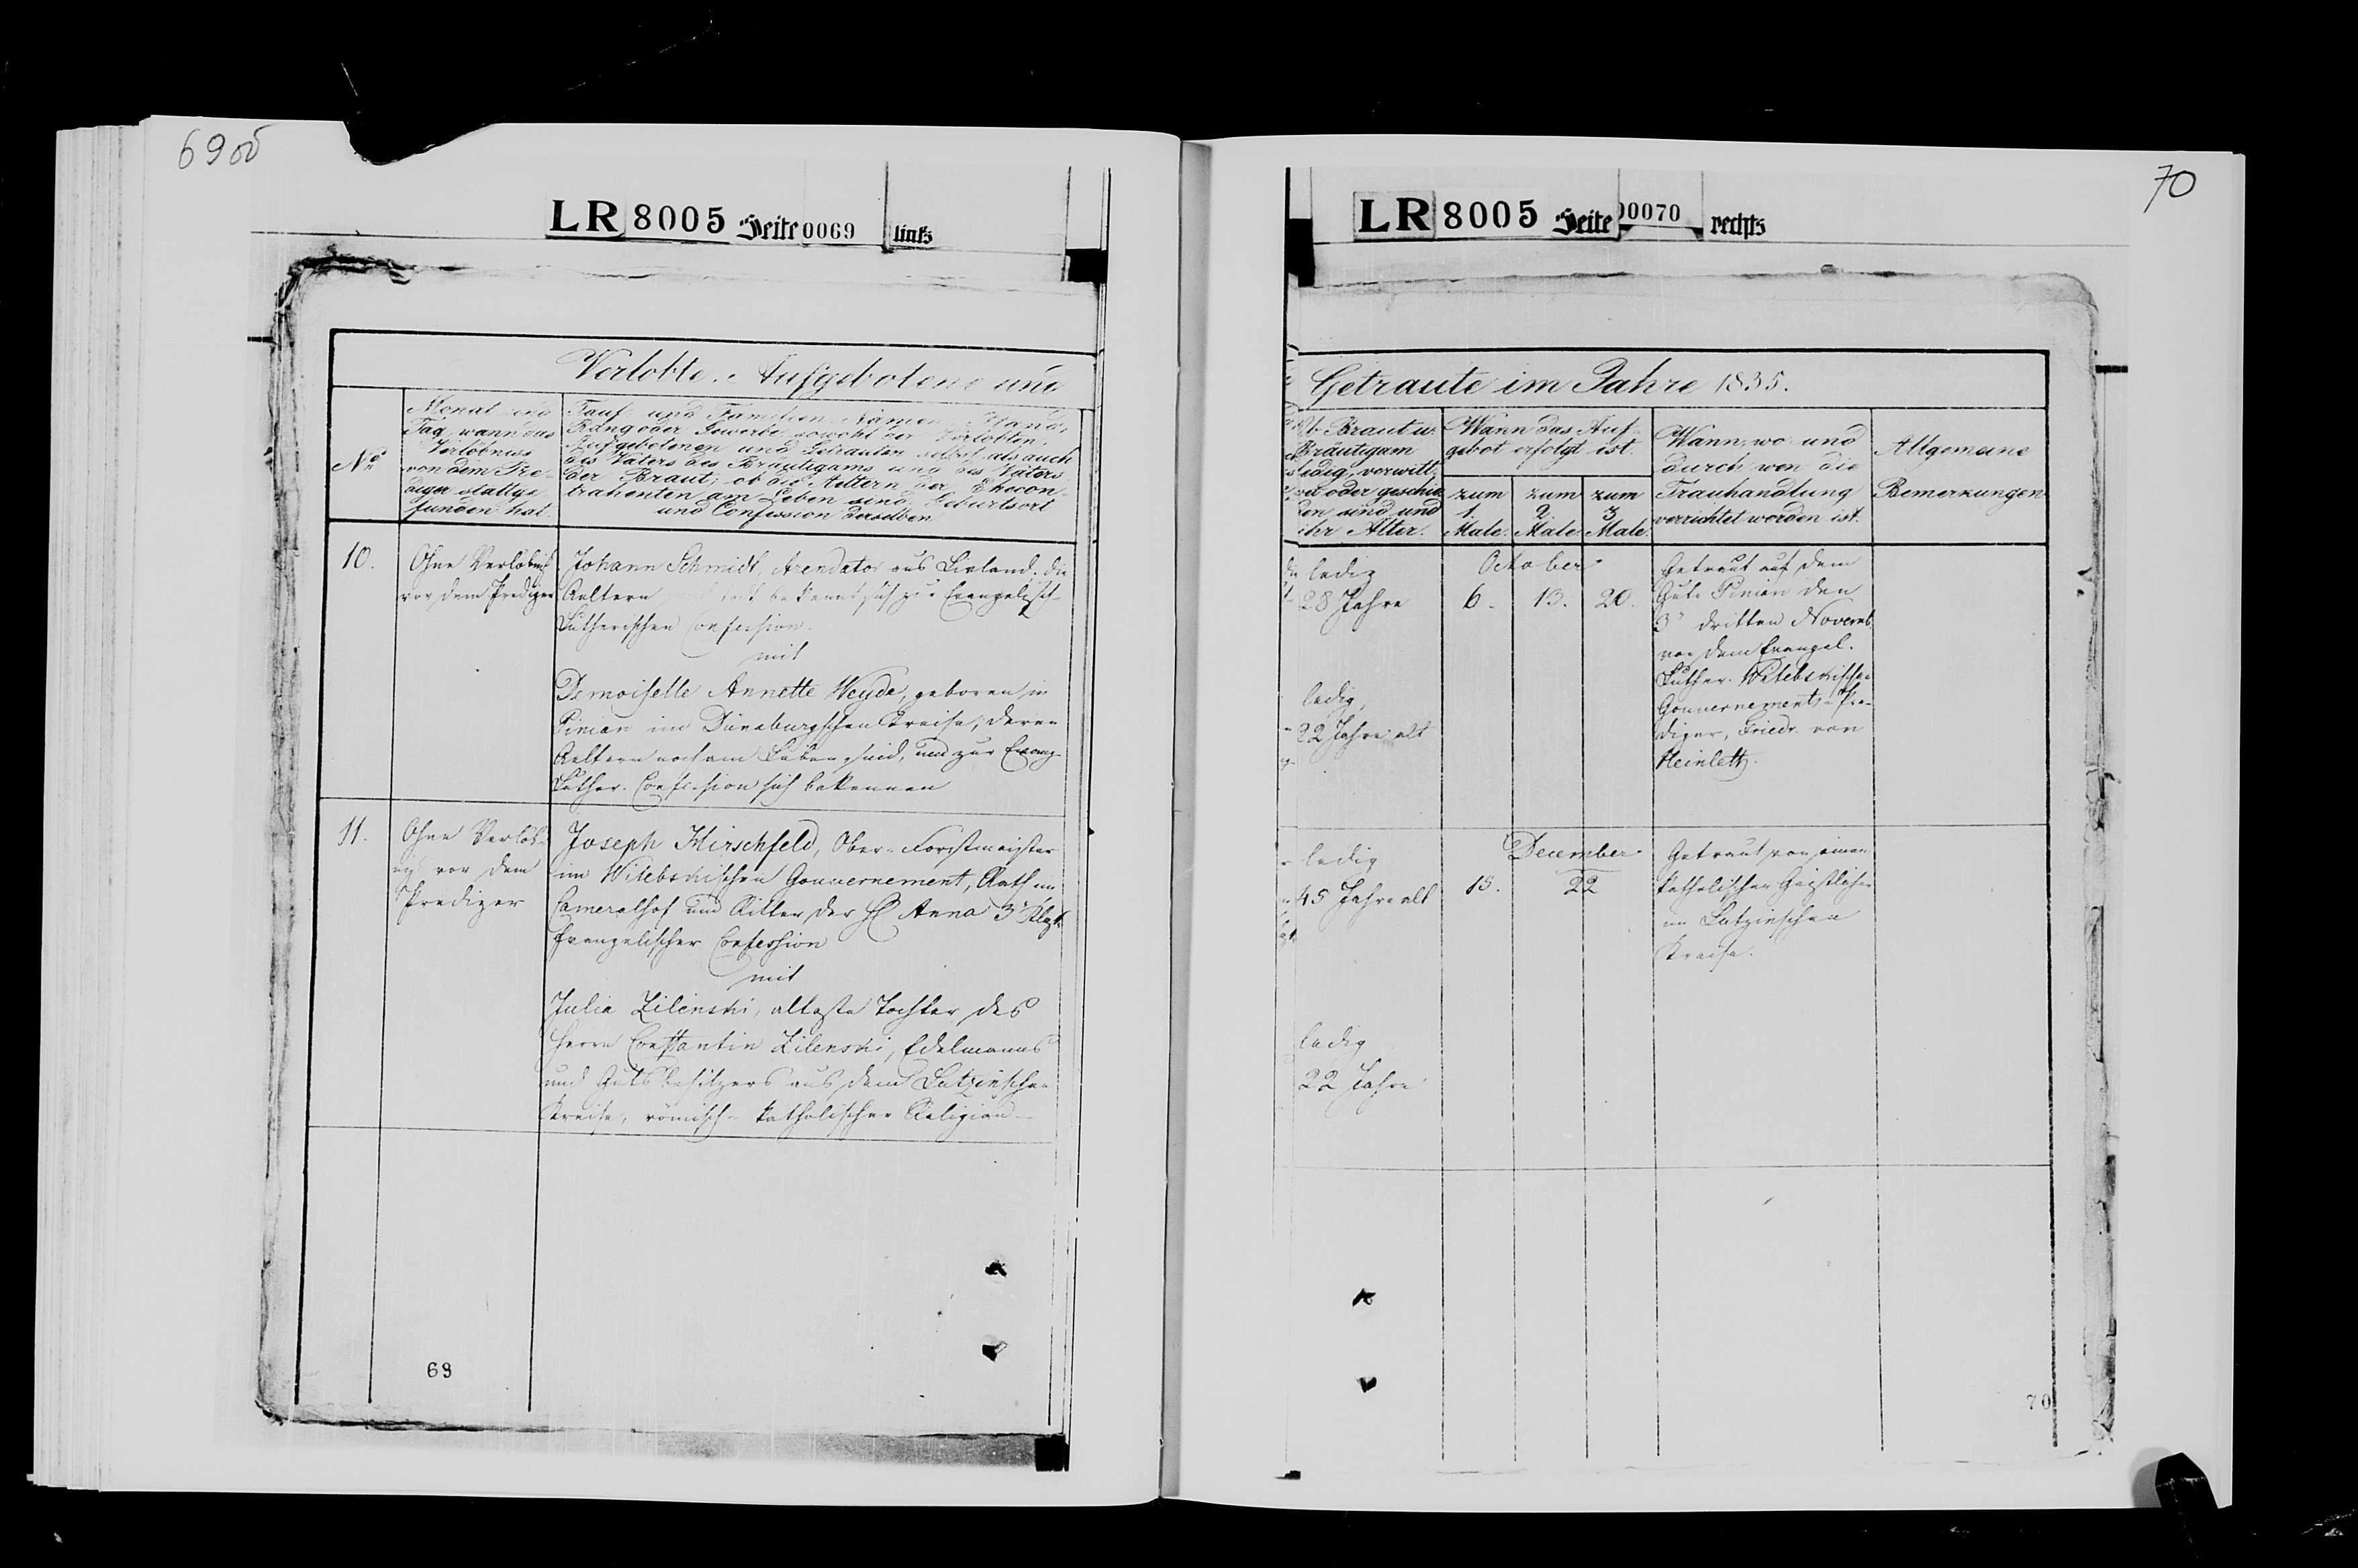 69 об
LR 8005 Seite 0069 links
Verlobte, Aufgebotene und
No
Monat und
Tag, wann das
Verlöbniss
von dem Pre-
diger stattge-
funden hat.
Tauf- und Familien-Namen, Stand,
Rang oder Gewerbe, sowohl der Verlobten,
Aufgebotenen und Getrauten selbst als auch
des Vaters des Bräutigams und des Vaters
der Braut; ob die Aeltern der Ehecon-
trahenten am Leben sind, Geburtsort
und Confession derselben
10.
Ohne Verlöbniß
vor dem Prediger
Johann Schmidt, Arendator aus Livland; die
Aeltern bekennt sich zur Evangelisch-
Lutherischen Confession.
mit
Demoiselle Annette Weyde, geboren in
Pinian im Dünaburgschen Kreise, deren
Aeltern noch am Leben sind, und zur Evang-
Luther. Confession sich bekennen
11.
Ohne Verlöb-
niß vor dem
Prediger
Joseph Hirschfeld, Ober-Forstmeister
im Witebskischen Gouvernement, Rath im
Cameralhof und Ritter der Anna 3
Evangelischer Confession
mit
Julia Zilenski, älteste Tochter des
Herrn Constantin Zilenski, Edelmanns
und Gutsbesitzers aus dem Lutzinschen
Kreise, römisch-katholischer Religion
69
70
LR 8005 Seite 0070 rechts
Getraute im Jahre 1835.
Ob Braut u.
Bräutigam
ledig, verwitt-
wet oder geschie-
den sind und
ihr Alter.
Wann das Auf-
gebot erfolgt ist.
zum 1. Male.
zum 2. Male
zum 3 Male.
Wann, wo und
durch wen die
Trauhandlung
verrichtet worden ist.
Allgemeine
Bemerkungen
ledig
28 Jahre
October
6. 13. 20.
Getraut auf dem
Gute Pinian den
3 dritten Novemb
von dem Evangel.
Luther. Witebskischen
Gouvernements-Pre-
diger, Friedr. von
Heinleth.
ledig,
22 Jahre alt
ledig
45 Jahre alt
December
15. 22
Getraut von einem
katholischen Geistlichen
im Lutzinschen
Kreise.
ledig
22 Jahre
70